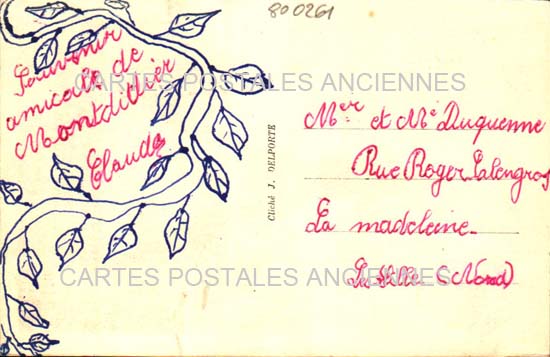 800261
Souvenir
amical de
Montdidier
Claude
CARTES POSTALES ANCIENNES
Cliché J. DELPORTE
Mer et Me Duquenne
Rue Roger Salengro
La madeleine
Lez Lille (Nord)
CARTES POSTALES ANCIENNES